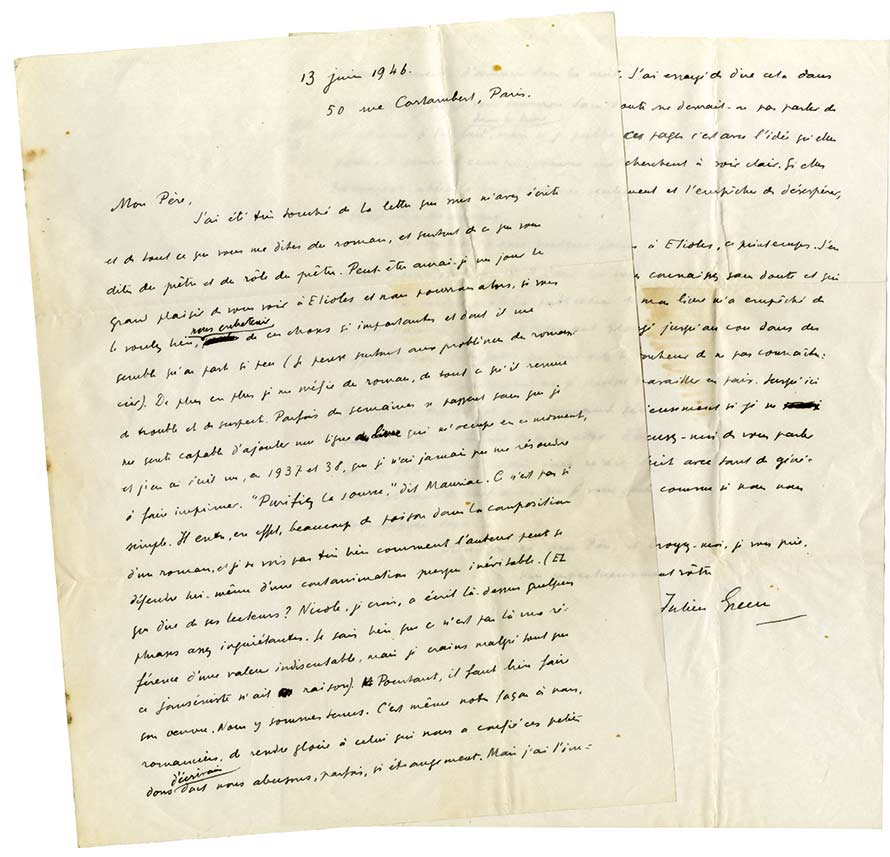 13 juin 1946.
50 rue Cortambert, Paris.
Mon Père,
J'ai été très touché de la lettre que vous m'avez écrite
et de tout ce que vous me dites du roman, et surtout de ce que vous
dites du prêtre et du rôle du prêtre. Peut-être aurai-je un jour le
grand plaisir de vous voir à Etiolles et nous pourrons alors, si vous
nous entretenir
le voulez bien, de ces choses si importantes et dont il me
semble qu'on parle si peu (Je pense surtout aux problèmes du roman-
cier). De plus en plus je me méfie du roman, de tout ce qu'il remue
de trouble et de suspect. Parfois des semaines se passent sans que je
me sente capable d'ajouter une ligne au livre qui m'occupe en ce moment,
et j'en ai écrit un, en 1937 et 38, que je n'ai jamais pu me résoudre
à faire imprimer. "Purifiez la source," dit Mauriac. C'est pas si
simple. Il entre, en effet, beaucoup de poison dans la composition
d'un roman, et je ne vois pas très bien comment l'auteur peut se
défendre lui-même d'une contamination presque inévitable. (Et
que dire de ses lecteurs? Nicole, je crois, a écrit là-dessus quelques
phrases assez inquiétantes. Je sais bien que ce n'est pas là une ré-
férence d'une valeur indiscutable, mais je crains malgré tout que
ce janséniste n'ait raison). Pourtant, il faut bien faire
son oeuvre. Nous y sommes tenus. C'est même notre façon à nous,
romanciers, de rendre gloire à celui qui nous a confié ces petits
d'écrivain
dons dont nous abusons, parfois, si étrangement. Mais j'ai l'im-
J'ai essayé de dire cela dans
doute me demait-ne pas parler de
ces pages c'est avec l'idée qu'elles
cherchent à voir clair. Si elles
et l'empêcher de désespérer,
à Etiolles, ce printemps. J'en
connaissez sans doute et qui
mon livre m'a empêché de
jusqu'au cou dans des
de ne pas connaître:
travailler en paix. Jusqu'ici
si je ne
excusez-moi de vous parler
avec tant de géné-
comme si nous nous
croyez-moi, je vous prie,
vôtre
Julien Green